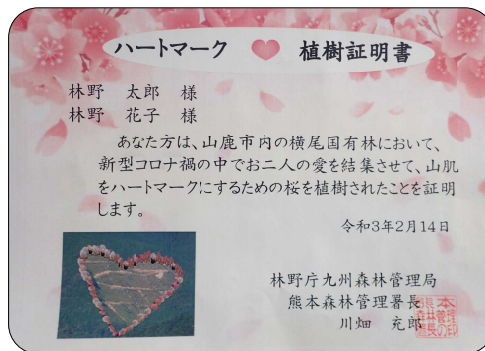 ハートマーク 植樹証明書
林野 太郎 様
林野 花子 様
あなた方は、山鹿市内の横尾国有林において、
新型コロナ禍の中でお二人の愛を結集させて、山肌
をハートマークにするための桜を植樹されたことを証明
します。
令和3年2月14日
林野庁九州森林管理局
熊本森林管理署長
川畑 充郎